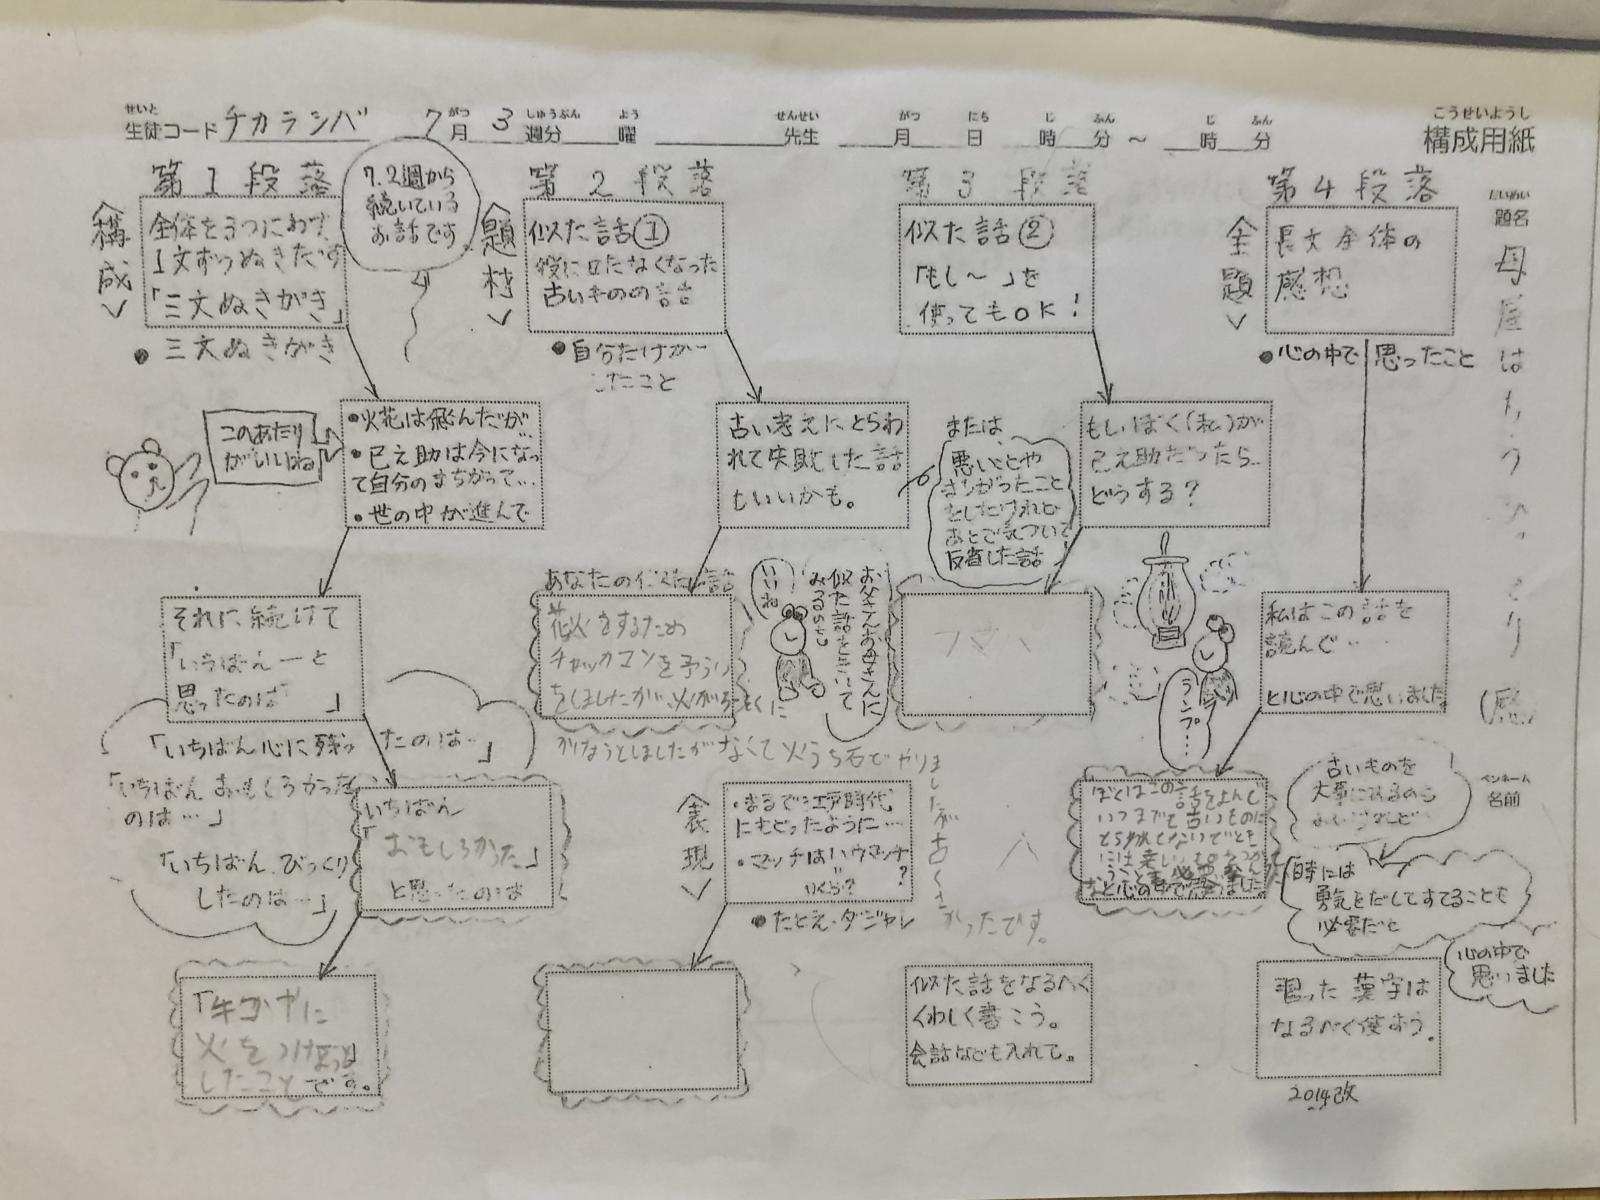 構成用紙
こうせいようし
せいと
生徒コード チカラシバ
7月 3週分 曜
がつ しゅうぶん よう
せんせい
先生
がつ にち じ ふん じ ふん
月 日 時 分 ~ 時 分
だいめい
題名
母屋はもう
ペンネーム
名前
第1段落
<構成>
全体を3つにわけ
1文ずつぬきだす
「三文ぬきがき」
●三文ぬきがき
7.2週から
続いている
お話です
このあたり
がいいね
●火花は飛んだが…
●巳之助は今になっ
て自分のまちがって…
●世の中が進んで
それに続けて
「いちばん―と
思ったのは 」
「いちばん心に残ったのは…」
「いちばんおもしろかった
のは…」
「いちばんびっくり
したのは…」
いちばん
「おもしろかった」
と思ったのは
火をつけようと
したことです。
第2段落
<題材>
似た話①
役に立たなくなった
古いものの話
●自分だけが
したこと
古い考えにとらわ
れて失敗した話
もいいかも。
あなたの似た話
花火をするため
チャッカマンを
をしましたが
なくて火うち石でやりました
かったです。
いいね
お父さんお母さんに
似た話をきいて
みるのも
<表現>
・まるで江戸時代
にもどったように…
・マッチはハウマッチ
いくら?
●たとえ・ダジャレ
第3段落
似た話②
「もし~」を
使ってもOK!
または、
悪いことや
まちがったこと
をしたけれど
あとで気づいて
反省した話
もしぼく(私)が
巳之助だったら…
どうする?
ランプ…
似た話をなるべく
くわしく書こう。
会話なども入れて。
第4段落
<主題>
長文全体の
感想
●心の中で思ったこと
私はこの話を
読んで…
と心の中で思いました
ぼくはこの話をよんで
いつまでも古いものに
とらわれてないでとき
など心の中で思いました
古いものを
大事にするのも
よいけれど…
時には
勇気をだしてすてることも
必要だと
心の中で
思いました
習った漢字は
なるべく使おう。
2014改